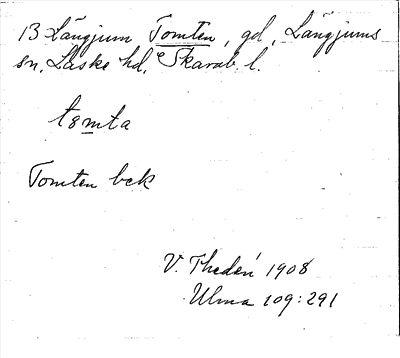 13 Längjum Tomten, gd, Längjums
sn, Laske hd, Skarab. l.
tomta
Tomten bck
V. Thedén 1908
Ulma 109:291